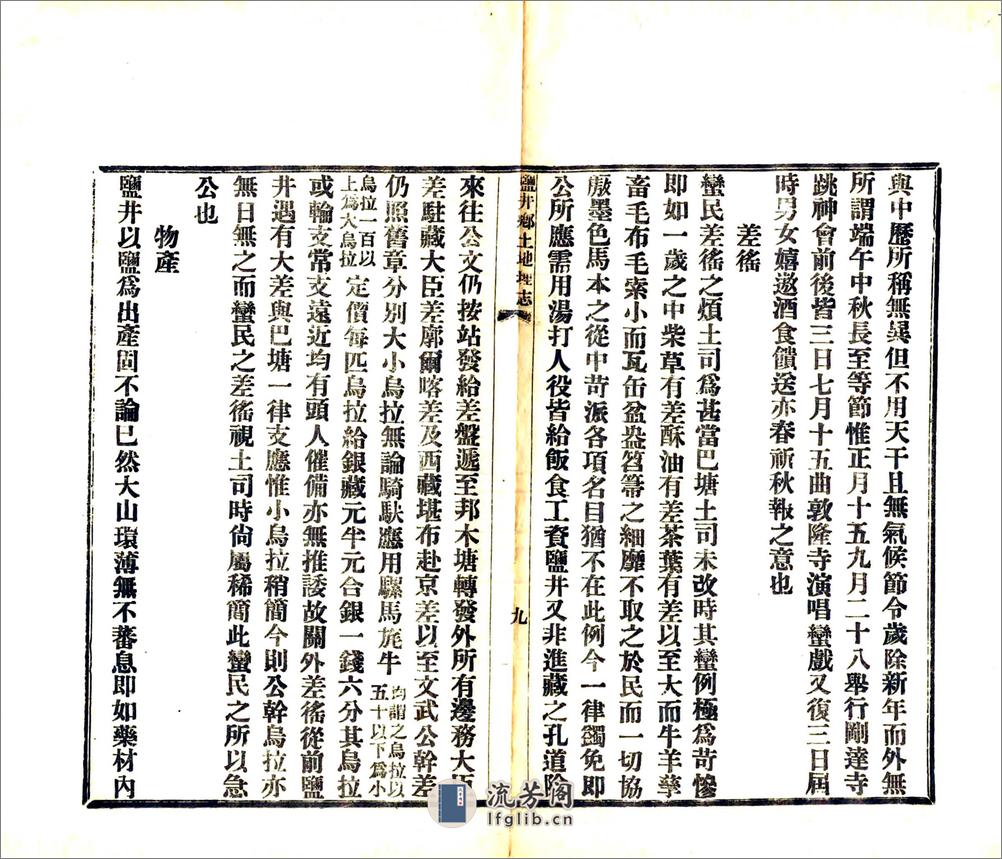 與中歷所稱無異但不用天干且無氣候節令歲除新年而外無
所謂端午中秋長至等節惟正月十五九月二十八舉行剛達寺
跳神會前後皆三日七月十五曲敦隆寺演唱蠻戲又復三日屆
時男女嬉遨酒食饋送亦春祈秋報之意也
差徭
蠻民差徭之煩土司爲甚當巴塘土司未改時其蠻例極爲苛慘
即如一歲之中柴草有差酥油有差茶葉有差以至大而牛羊孳
畜毛布毛索小而瓦缶盆盎笤箒之細靡不取之於民而一切協
廒墨色馬本之從中苛派各項名目猶不在此例今一律蠲免即
公所應需用湯打人役皆給飯食工資鹽井又非進藏之孔道除
鹽井鄉土地理志
九
來往公文仍按站發給差盤遞至邦木塘轉發外所有邊務大臣
差駐藏大臣差廓爾喀差及西藏堪布赴京差以至文武公幹差
仍照舊章分別大小烏拉無論騎馱應用騾馬旄牛均謂之烏拉以五十以下爲小
烏拉一百以上爲大烏拉定價每匹烏拉給銀藏元半元合銀一錢六分其烏拉
或輪支常支遠近均有頭人催備亦無推諉故關外差徭從前鹽
井遇有大差與巴塘一律支應惟小烏拉稍簡今則公幹烏拉亦
無日無之而蠻民之差徭視土司時尙屬稀簡此蠻民之所以急
公也
物產
鹽井以鹽爲出產固不論已然大山環薄無不蕃息即如藥材內
流芳閣
lfglib.cn